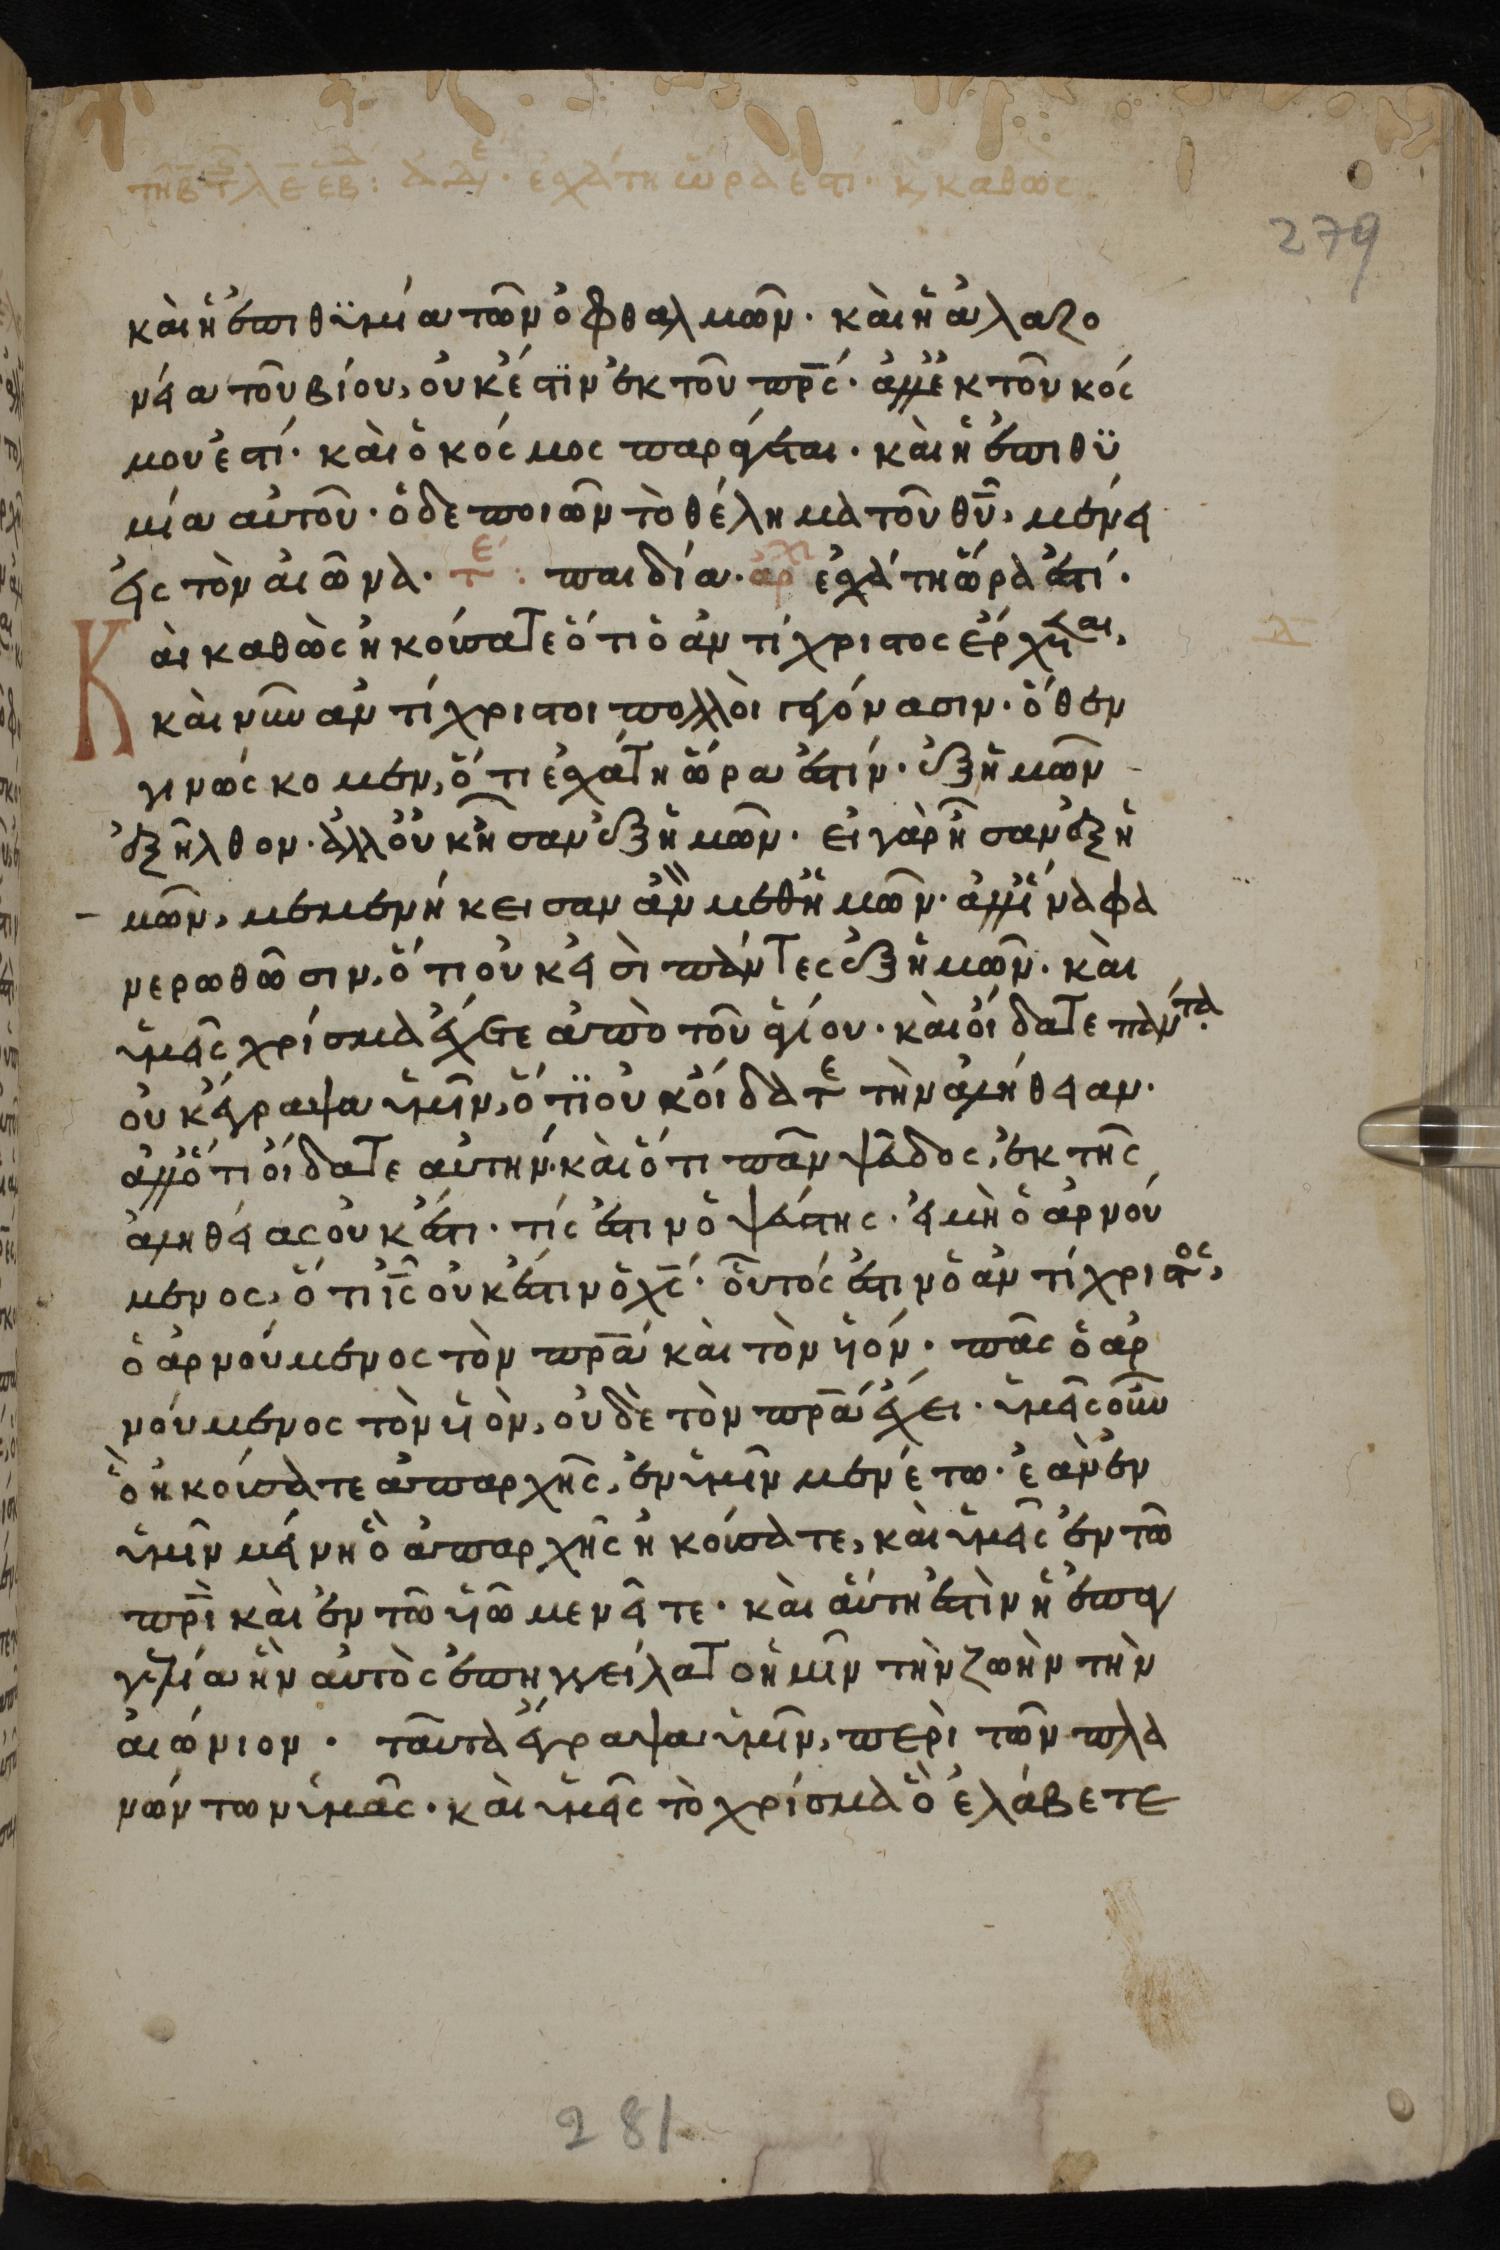 τῆ β τ λε εβ: ἀδε. ἐσχάτη ὥρα ἐστί. κ, καθὼς.
279
καὶ ἡ ἐπιθϋμία τῶν ὀφθαλμῶν· καὶ ἡ ἀλαζο
νεία τοῦ βίου, οὐκ ἔστϊν ἐκ τοῦ πρ̅ς· ἀλλ' ἐκ τοῦ κόσ
μου ἐστί· καὶ ὁ κόσμος παράγεται· καὶ ἡ ἐπιθϋ
μία αὐτοῦ· ὁ δὲ ποιῶν τὸ θέλημα τοῦ θυ̅, μένει
εἰς τὸν αἰῶνα· τε: παιδία· ἀρχ ἐσχάτη ὥρα ἐστί·
Καὶ καθὼς ἠκούσατε ὅτι ὁ ἀντίχριστος ἔρχεται,
καὶ νῦν ἀντίχριστοι πολλοὶ γεγόνασιν· ὅθεν
γινώσκομεν, ὅτι ἐσχάτη ὥρα ἐστίν· ἐξ ἡμῶν
ἐξῆλθον· ἀλλ' οὐκ ἦσαν ἐξ ἡμῶν· εἰ γὰρ ἦσαν ἐξ ἡ
μῶν, μεμενήκεισαν ἂν μεθ' ἡμῶν· ἀλλ' ἵνα φα
νερωθῶσιν, ὅτι οὐκ εἰσὶ πάντες ἐξ ἡμῶν· καὶ
ὑμεῖς χρίσμα ἔχετε ἀπὸ τοῦ ἁγίου· καὶ οἴδατε πάντα·
οὐκ ἔγραψα ὑμῖν, ὅτϊ οὐκ οἴδατε τὴν ἀλήθειαν·
ἀλλ' ὅτι οἴδατε αὐτήν· καὶ ὅτι πᾶν ψεῦδος, ἐκ τῆς
ἀληθείας οὐκ ἔστι· τίς ἐστιν ὁ ψεύστης· εἰ μὴ ὁ ἀρνού
μενος, ὅτι ι̅ς οὐκ ἔστιν ὁ χ̅ς· οὗτός ἐστιν ὁ ἀντίχριστος,
ὁ ἀρνούμενος τὸν πρ̅α καὶ τὸν υἱόν· πᾶς ὁ ἀρ
νούμενος τὸν υἱὸν, οὐδὲ τὸν πρ̅α ἔχει· ὑμεῖς οὖν
ὃ ἠκούσατε ἀπαρχῆς, ἐν ὑμῖν μενέτω· ἐὰν ἐν
ὑμῖν μείνη ὃ ἀπαρχῆς ἠκούσατε, καὶ ὑμεῖς ἐν τῶ
πρ̅ι καὶ ἐν τῶ υἱῶ μενεῖτε· καὶ αὕτη ἐστὶν ἡ ἐπαγ
γελία ἣν αὐτὸς ἐπηγγείλατο ἡμῖν τὴν ζωὴν τὴν
αἰώνιον· ταῦτα ἔγραψα ὑμῖν, περὶ τῶν πλα
νώντων ὑμᾶς· καὶ ὑμεῖς τὸ χρίσμα ὃ ἐλάβετε
281